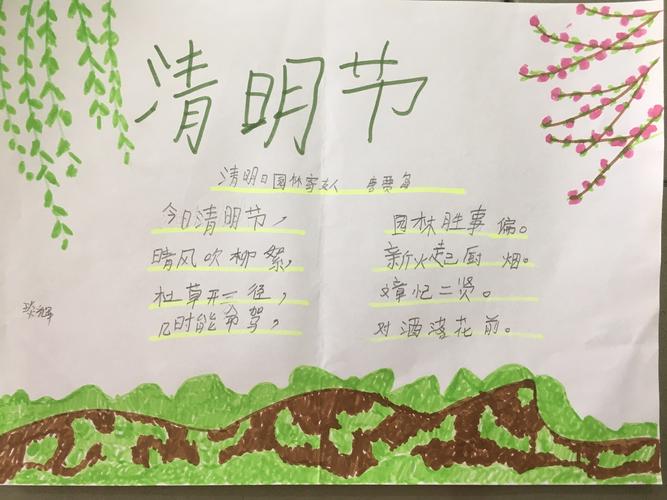 清明节
清明日园林寄友人 唐 贾岛
今日清明节， 园林胜事偏。
晴风吹柳絮， 新火起厨烟。
杜草开三径， 文章忆二贤。
几时能命驾， 对洒落花前。